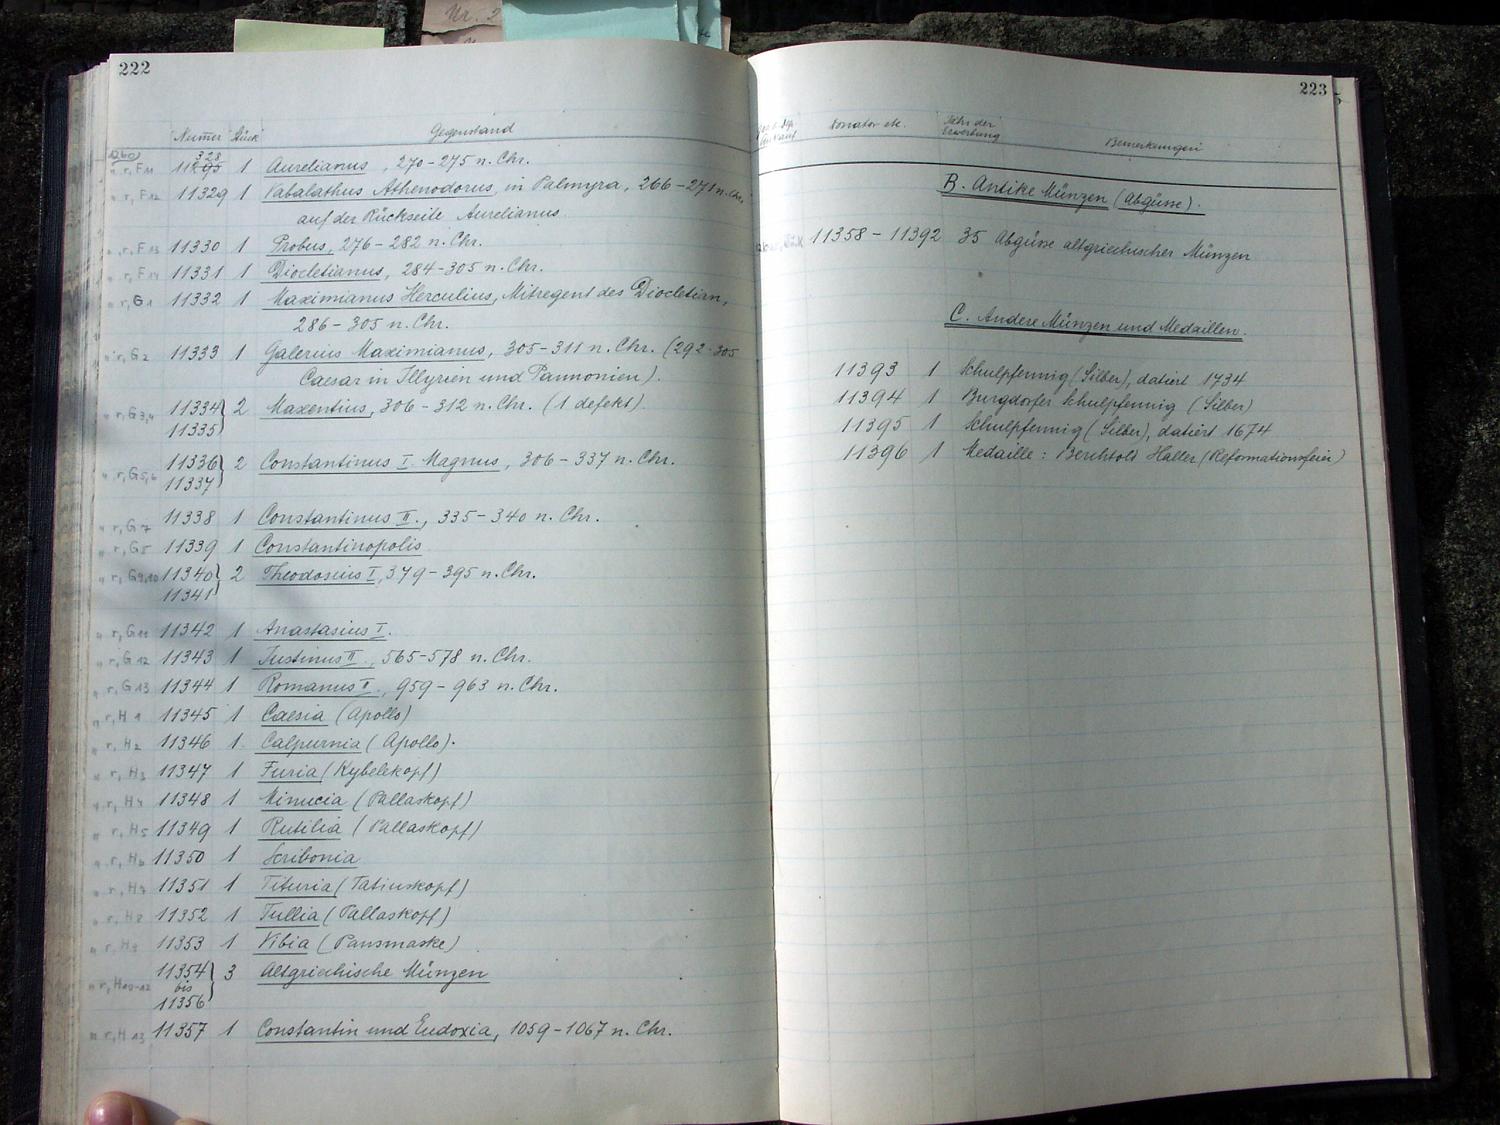 222
Numer Stück Gegenstand
r, F11 11328 1 Aurelianus, 270-275 n. Chr.
" r, F12 11329 1 Vabalathus Athenodorus, in Palmyra, 266-271 n. Chr.
auf der Rückseite Aurelianus.
" r, F13 11330 1 Probus, 276-282 n. Chr.
" r, F14 11331 1 Diocletianus, 284-305 n. Chr.
" r, G1 11332 1 Maximianus Herculius, Mitregent des Diocletian,
286-305 n. Chr.
" r, G2 11333 1 Galerius Maximianus, 305-311 n. Chr. (292-305
Caesar in Illyrien und Pannonien).
" r, G3,4 11334 } 2 Maxentius, 306-312 n. Chr. (1 defekt).
11335
" r, G5,6 11336 } 2 Constantinus I. Magnus, 306-337 n. Chr.
11337
" r, G7 11338 1 Constantinus II., 335-340 n. Chr.
" r, G8 11339 1 Constantinopolis
" r, G9,10 11340 } 2 Theodosius I, 379-395 n. Chr.
11341
" r, G11 11342 1 Anastasius I.
" r, G12 11343 1 Justinus II., 565-578 n. Chr.
" r, G13 11344 1 Romanus II., 959-963 n. Chr.
" r, H1 11345 1 Caesia (Apollo)
" r, H2 11346 1. Calpurnia (Apollo).
" r, H3 11347 1 Furia (Kybelekopf)
" r, H4 11348 1 Minucia (Pallaskopf)
" r, H5 11349 1 Rutilia (Pallaskopf)
" r, H6 11350 1 Scribonia
" r, H7 11351 1 Tituria (Tatiuskopf)
" r, H8 11352 1 Tullia (Pallaskopf)
" r, H9 11353 1 Vibia (Pansmaske)
11354 } 3 Altgriechische Münzen
" r, H10-12 bis
11356
" r, H13 11357 1 Constantin und Eudoxia, 1059-1067 n. Chr.
223
Ankauf Donator etc. Jahr der Erwerbung Bemerkungen
B. Antike Münzen (Abgüsse).
11358 - 11392 35 Abgüsse altgriechischer Münzen
C. Andere Münzen und Medaillen.
11393 1 Schulpfennig (Silber), datiert 1734
11394 1 Burgdorfer Schulpfennig (Silber)
11395 1 Schulpfennig (Silber), datiert 1674
11396 1 Medaille: Berchtold Haller (Reformationsfeier)